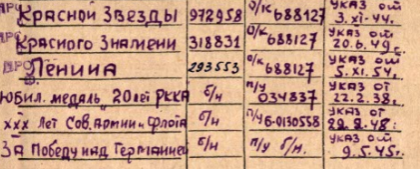 Красной Звезды 972958 о/к 688127 Указ от 3.XI.44.
Красного Знамени 318831 о/к 688127 Указ от 20.6.49
Ленина 293553 о/к 688127 Указ от 5.XI.54.
Юбил. медаль „20 лет РККА б/н п/у 034837 Указ от 22.2.38.
XXX лет Сов. Армии и Флота б/н п/у б-0130558 Указ от 22.2.48.
За Победу над Германией б/н п/у б/н. Указ от 9.5.45.